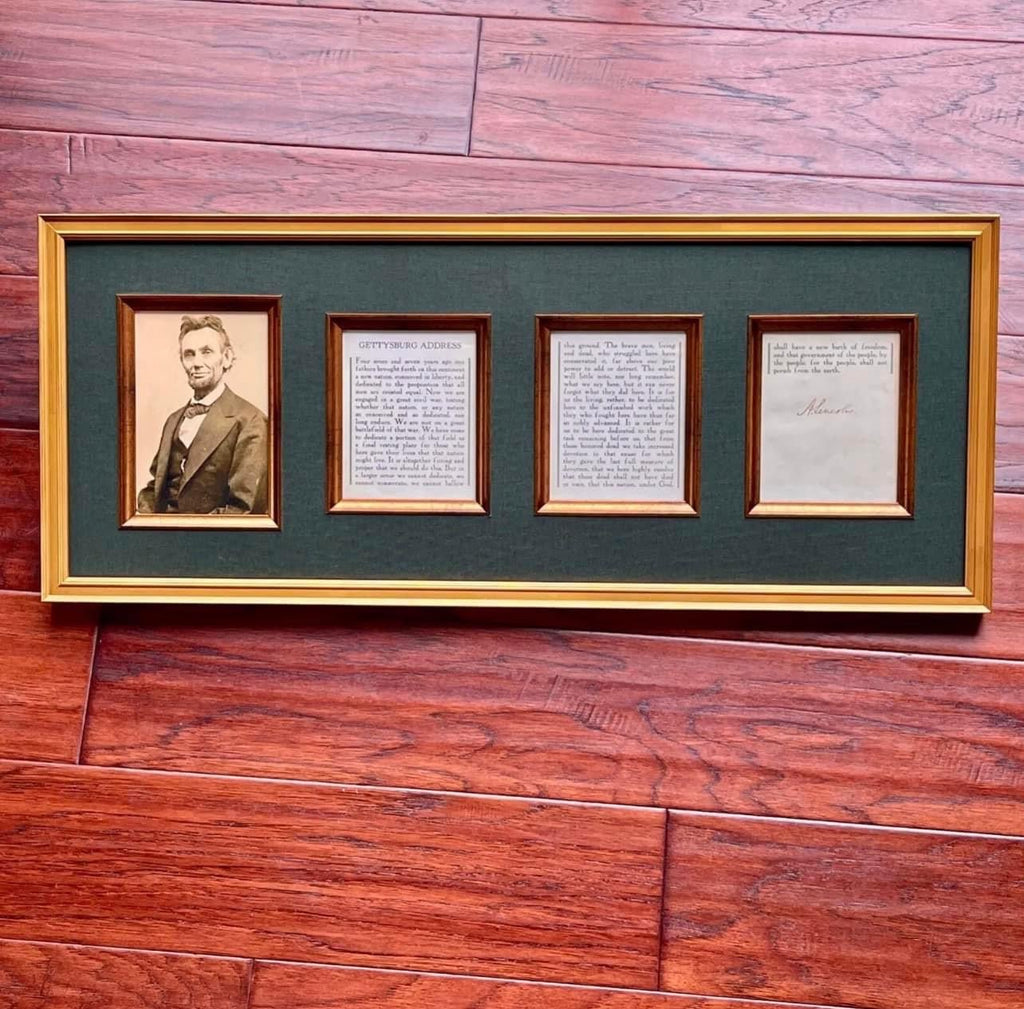 GETTYSBURG ADDRESS
Four score and seven years ago our
fathers brought forth on this continent
a new nation, conceived in liberty, and
dedicated to the proposition that all
men are created equal. Now we are
engaged in a great civil war, testing
whether that nation, or any nation
so conceived and so dedicated, can
long endure. We are met on a great
battlefield of that war. We have come
to dedicate a portion of that field as
a final resting place for those who
here gave their lives that that nation
might live. It is altogether fitting and
proper that we should do this. But in
a larger sense we cannot dedicate, we
cannot consecrate, we cannot hallow
this ground. The brave men, living
and dead, who struggled here have
consecrated it, far above our poor
power to add or detract. The world
will little note, nor long remember,
what we say here, but it can never
forget what they did here. It is for
us the living, rather, to be dedicated
here to the unfinished work which
they who fought here have thus far
so nobly advanced. It is rather for
us to be here dedicated to the great
task remaining before us, that from
these honored dead we take increased
devotion to that cause for which
they gave the last full measure of
devotion, that we here highly resolve
that these dead shall not have died
in vain, that this nation, under God,
shall have a new birth of freedom,
and that government of the people, by
the people, for the people, shall not
perish from the earth.
A. Lincoln